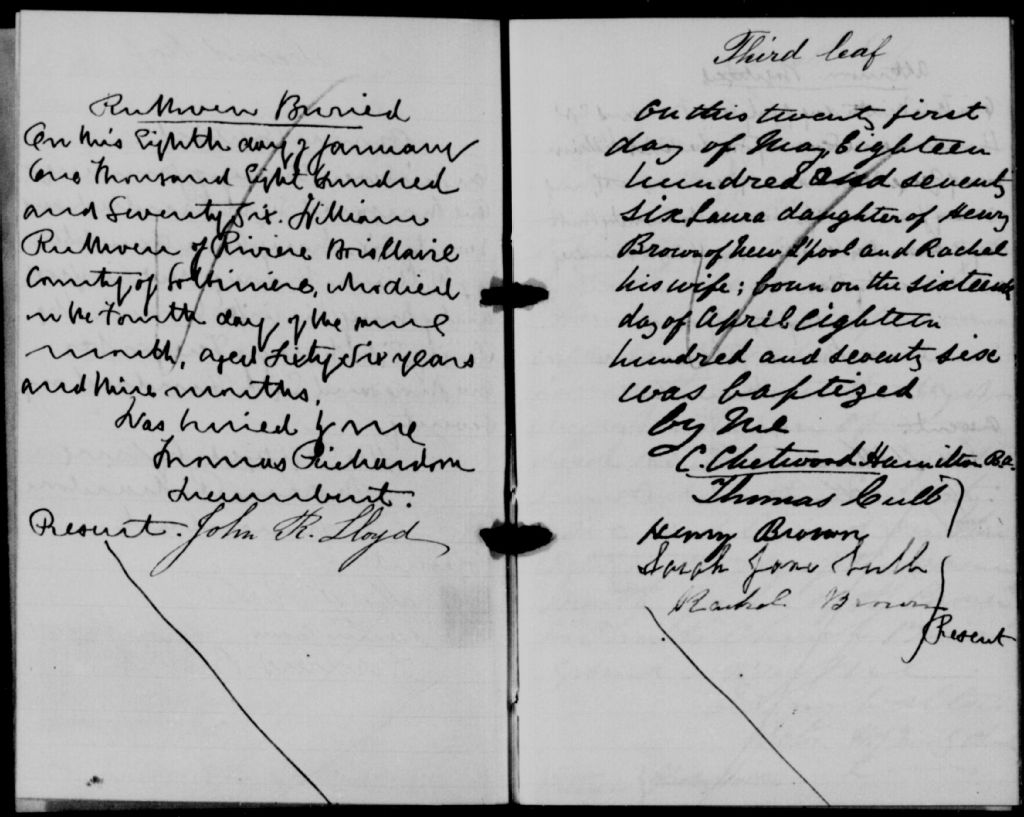 Ruthven Buried
On this Eighth day of January
One Thousand Eight hundred
and Seventy Six. William
Ruthven of Riviere Boisclaire
County of Lotbiniere, who died
on the Fourth day of the same
month, aged Sixty Six years
and Nine months,
Was buried by me
Thomas Richardson
Incumbent.
Present. John R. Lloyd
Third leaf
On this twenty first
day of May Eighteen
hundred and seventy
six Laura daughter of Henry
Brown of New L'pool and Rachel
his wife; born on the sixteenth
day of April Eighteen
hundred and seventy six
was baptized
by me
C. Chetwood Hamilton B.A.
Thomas
Henry Brown
Sarah Jane
Rachel Brown
Present